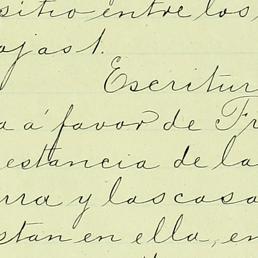 sitio entre los,
ojas 1.
Escritur
a á favor de Fr
estancia de la
rra y las casa
stan en ella, en